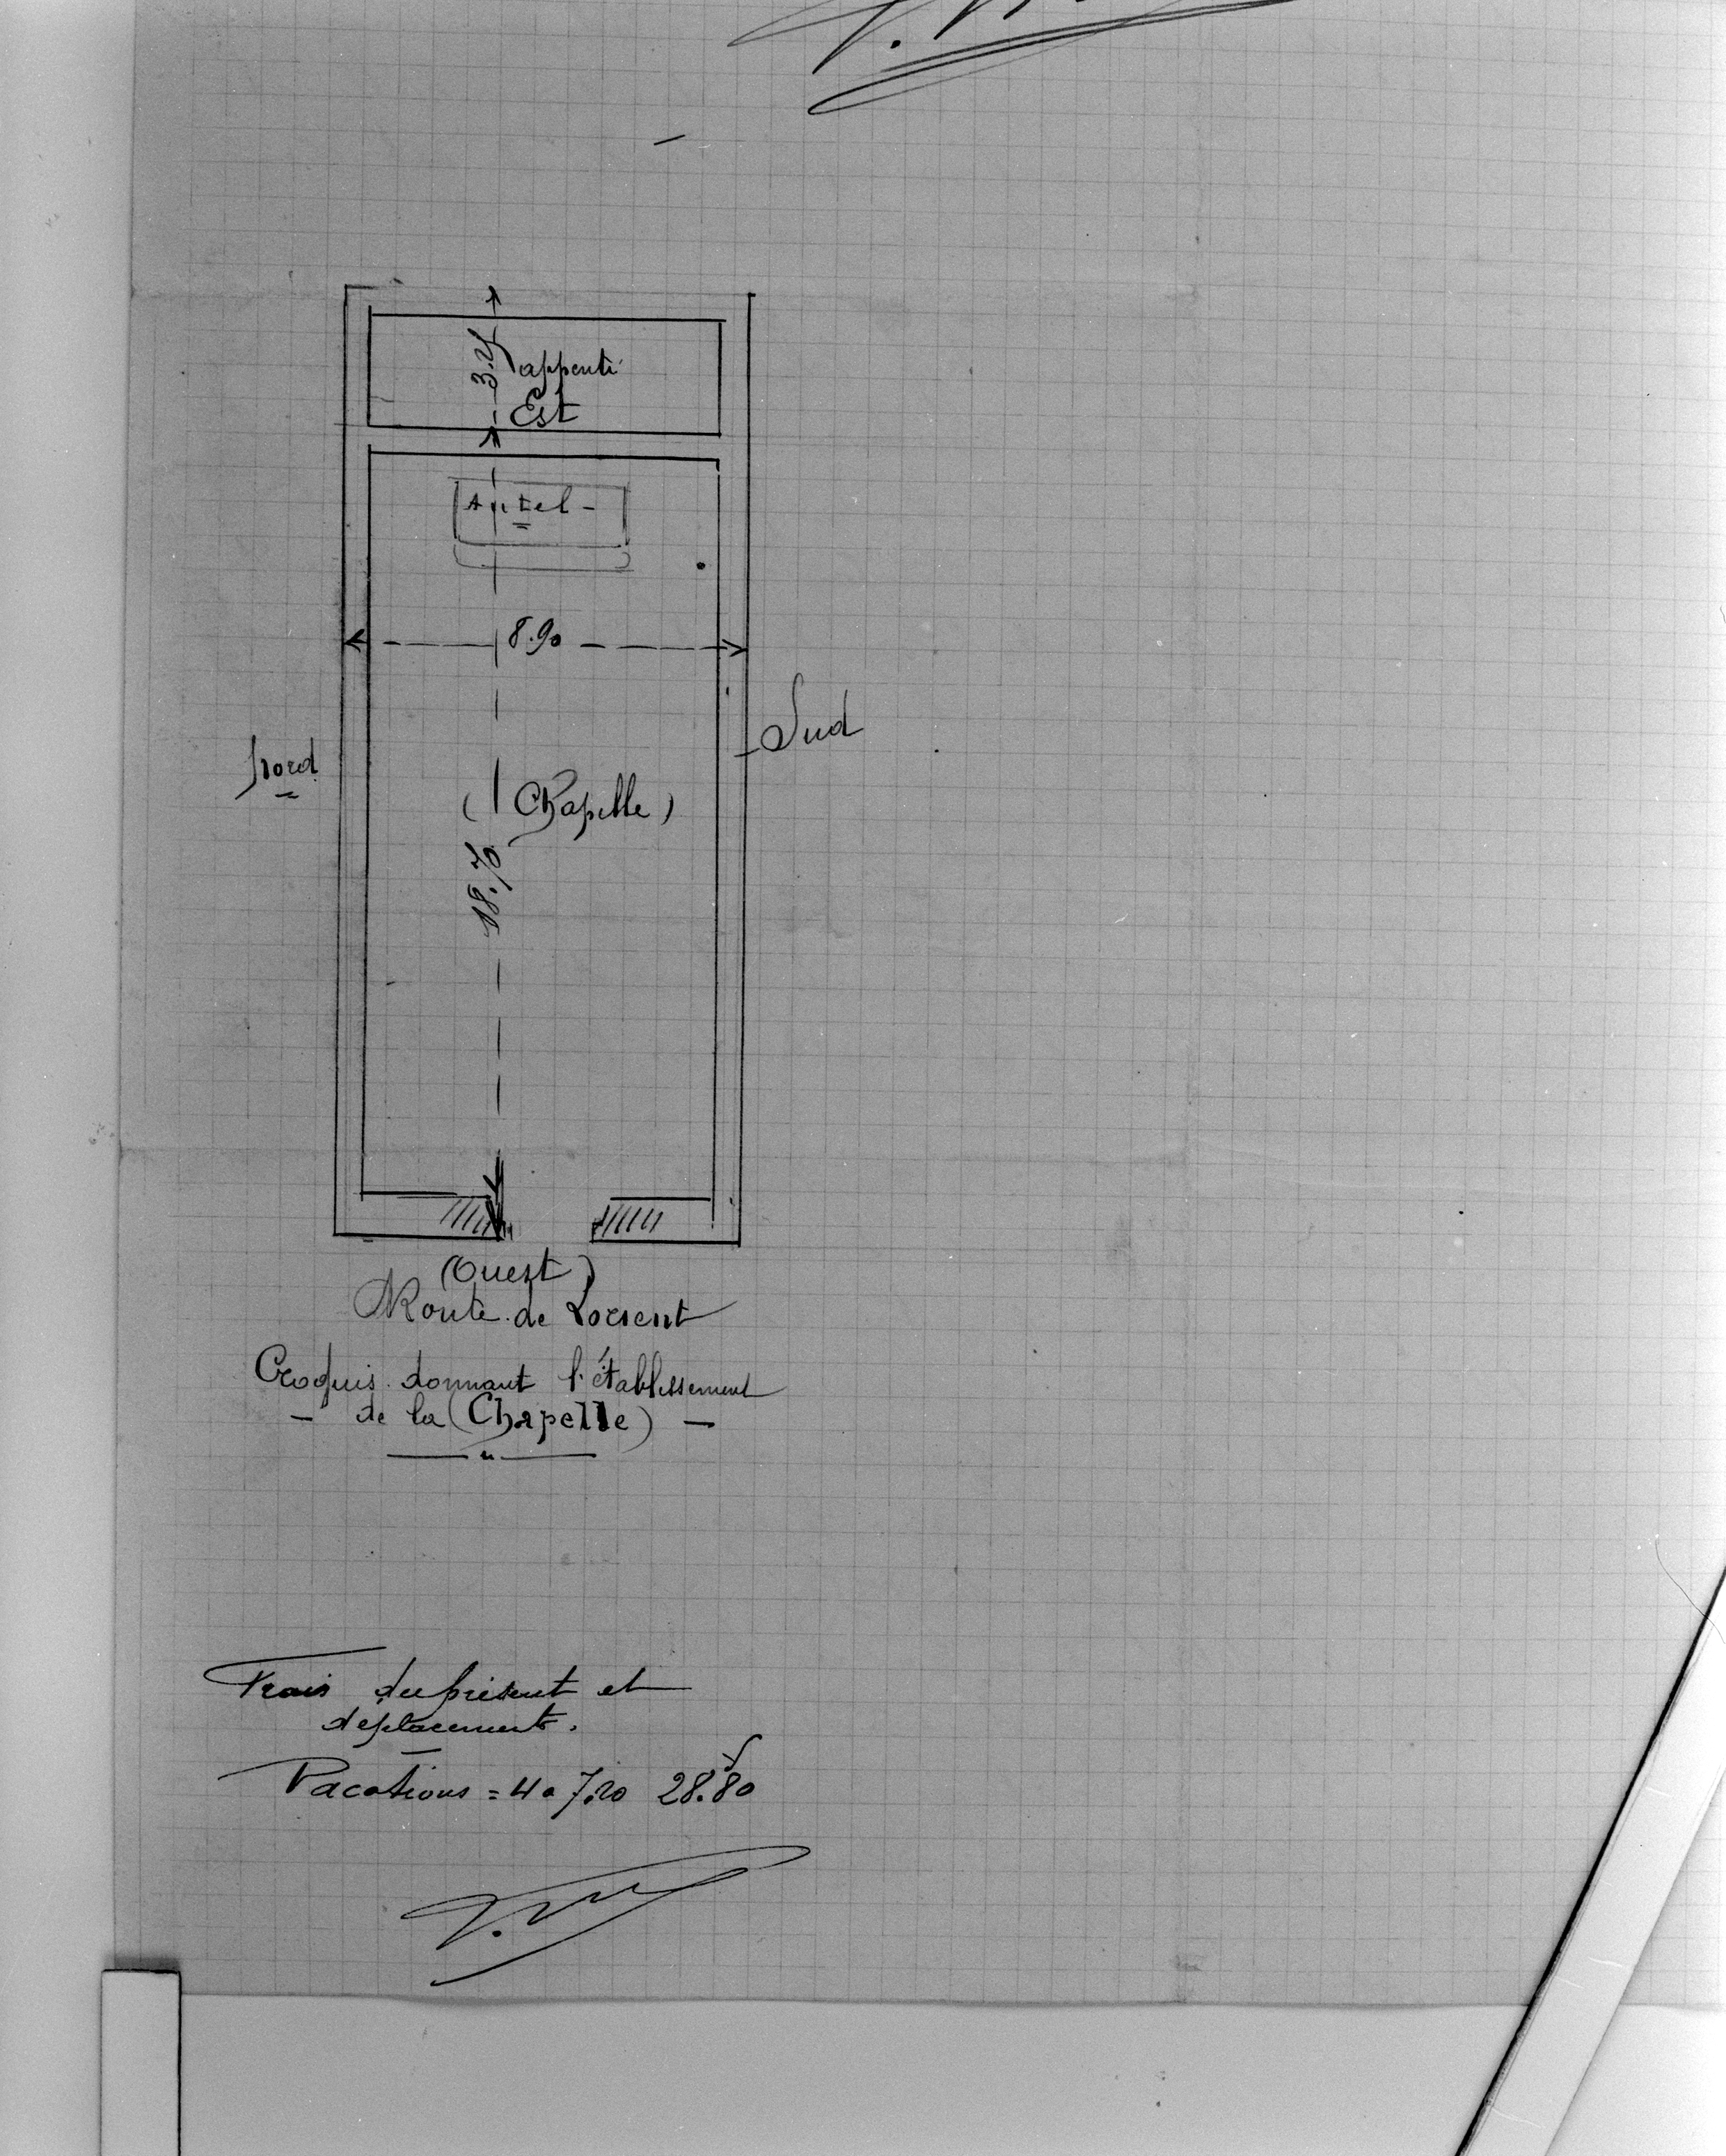 appenti
Est
Autel -
8.90
Sud
Nord
(Chapelle)
18.70
(Ouest)
Route de Lorient
Croquis donnant l'établissement
- de la (Chapelle) -
Frais du présent et
déplacement.
Vacations = 4 a 7.20 28.80